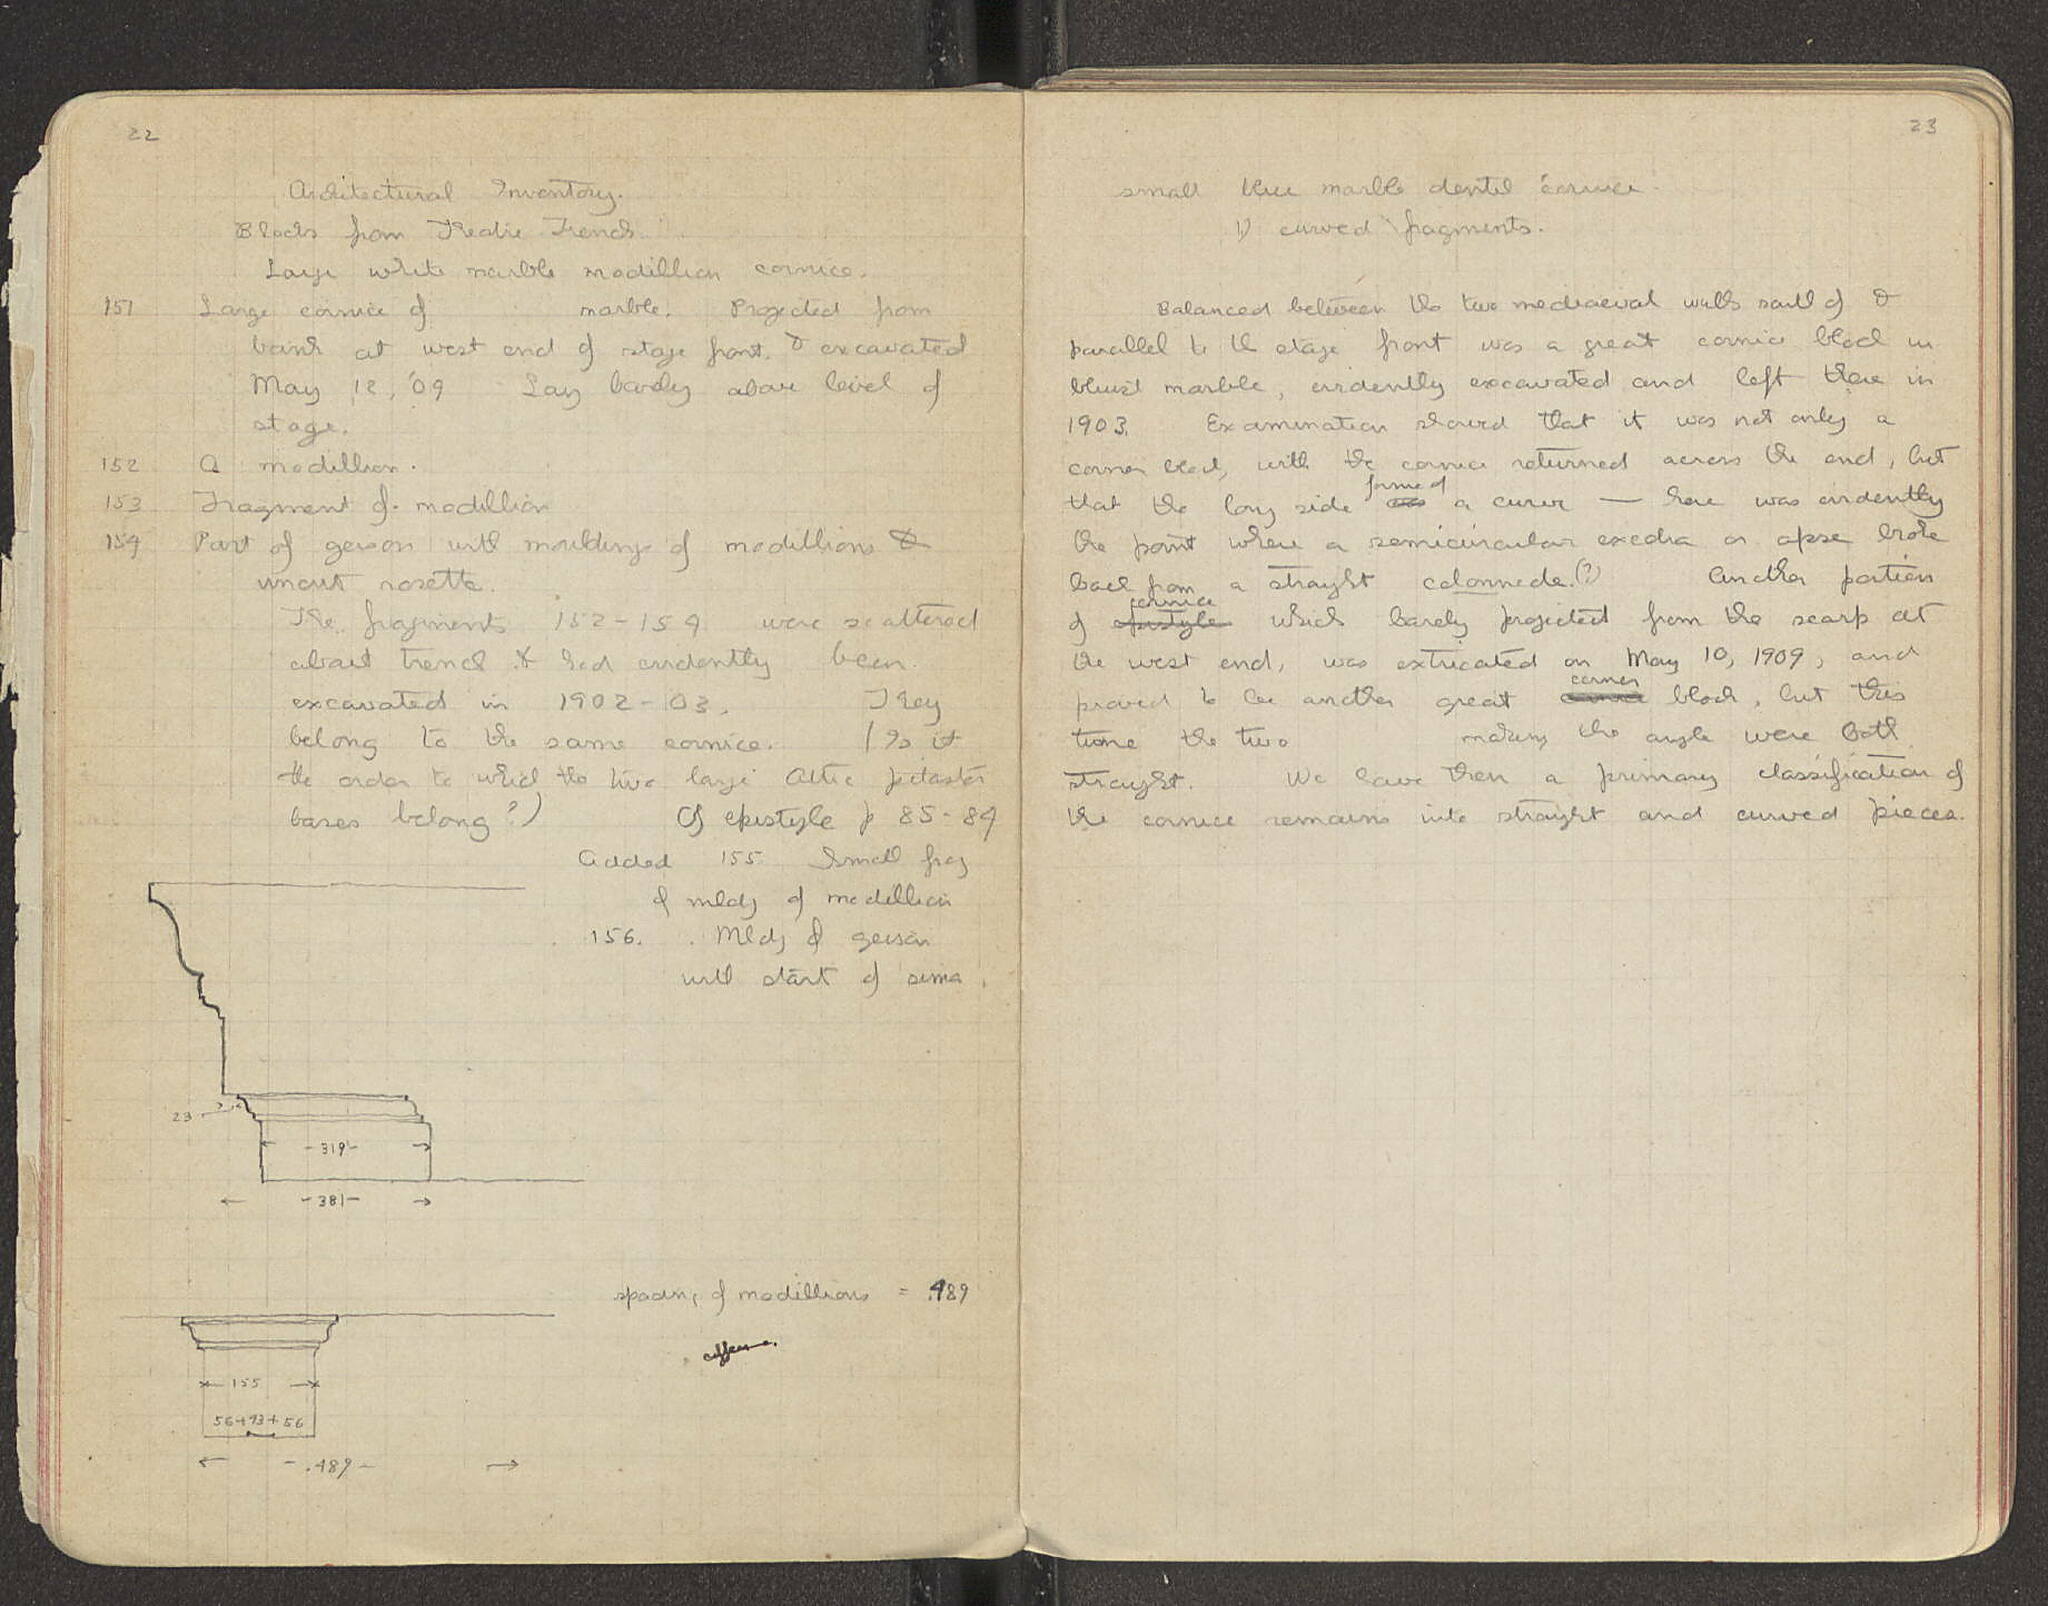 22
Architectural Inventory.
Blocks from Theatre Trench.
Large white marble modillion cornice.
151 Large cornice of marble. Projected from
bank at west end of stage front, & excavated
May 12, '09 Lay barely above level of
stage.
152 A modillion.
153 Fragment of modillion
154 Part of geison with mouldings of modillions &
uncut rosette.
The fragments 152-154 were scattered
about trench & had evidently been
excavated in 1902-03. They
belong to the same cornice. (Is it
the order to which the two large Attic pilaster
bases belong?) Cf epistyle p 85-84
Added 155 Small frag
of mldg of modillion
156. Mldg of geison
with start of sima.
23
-319-
-381-
spacing of modillions = .489
155
56+43+56
-.489-
23
small blue marble dentil cornice.
1) curved fragments.
Balanced between the two mediaeval walls south of &
parallel to the stage front was a great cornice block in
bluish marble, evidently excavated and left there in
1903. Examination showed that it was not only a
corner block, with the cornice returned across the end, but
that the long side formed a curve — here was evidently
the point where a semicircular exedra or apse broke
back from a straight colonnade.(?) Another portion
of epistyle cornice which barely projected from the scarp at
the west end, was extricated on May 10, 1909, and
proved to be another great cornice corner block, but this
time the two making the angle were both
straight. We have then a primary classification of
the cornice remains into straight and curved pieces.